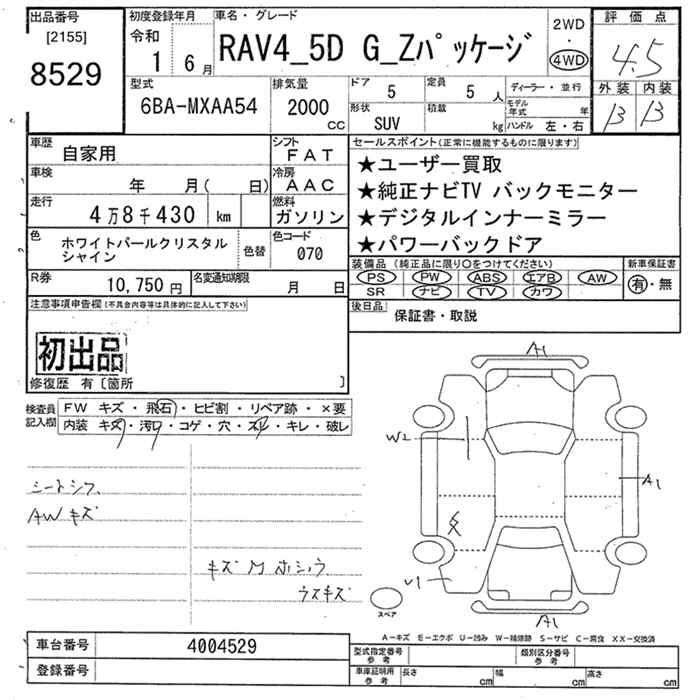 出品番号
[2155]
8529
初度登録年月
令和
1 6月
車名・グレード
RAV4_5D G_Zパッケージ
2WD
・
4WD
評価点
4.5
外装 内装
B B
型式
6BA-MXAA54
排気量
2000
CC
ドア
5
定員
5 人
形状
SUV
積載
kg
ディーラー・並行
モデル年式 年
ハンドル 左・右
車歴
自家用
シフト
FAT
車検
年 月( 日)
冷房
AAC
走行
4万8千430 km
燃料
ガソリン
色
ホワイトパールクリスタル
シャイン
色替
色コード
070
R券
10,750円
名変通知期限
月 日
セールスポイント(正常に機能するものに限ります)
★ユーザー買取
★純正ナビTV バックモニター
★デジタルインナーミラー
★パワーバックドア
装備品 (純正品に限り○をつけてください)
PS PW ABS エアB AW
SR ナビ TV カワ
新車保証書
有・無
後日品
保証書・取説
注意事項申告欄(不具合内容等は具体的に記入して下さい)
初出品
修復歴 有〔箇所 〕
検査員
記入欄
FW キズ・飛石・ヒビ割・リペア跡・×要
内装 キズ・汚レ・コゲ・穴・スレ・キレ・破レ
シートシワ
AWキズ
キズMホシュウ
ウスキズ
A1
W2
A1
U1
A1
スペア
A-キズ E-エクボ U-凹み W-補修跡 S-サビ C-腐食 XX-交換済
車台番号
4004529
登録番号
型式指定番号
参考
類別区分番号
参考
車庫証明用
参考
長さ cm
幅 cm
高さ cm